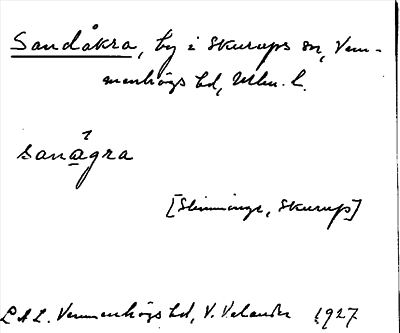 Sandåkra, by i Skurups sn, Vem-
menhögs hd, Mlm. l.
sanagra
[Slimminge, Skurup]
L A L. Vemmenhögs hd, V. Velander 1927